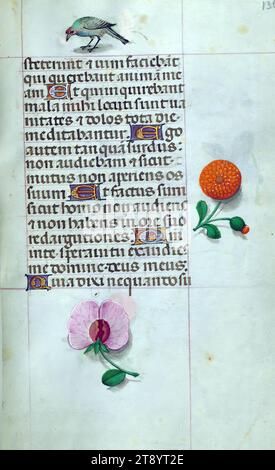 steterunt et uim faciebāt
qui querebant animā me
am Et qui inquirebant
mala mihi locuti sunt ua
nitates et dolos tota die
meditabantur Ego
autem tanquā surdus
non audiebam et sicut
mutus non aperiens os
suum Et factus sum
sicut homo non audiens
et non habens in ore suo
redargutiones in
te domine speraui exaudies
me domine deus meus
Quia dixi nequando su
alamy - 2T8YT2E